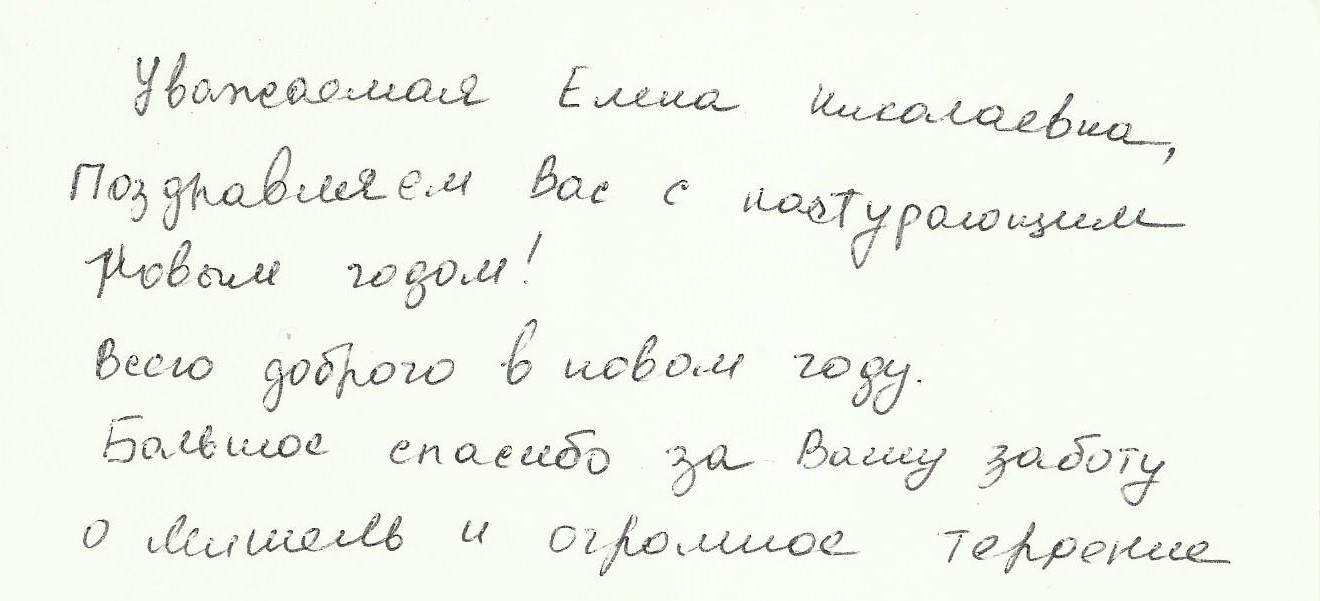 Уважаемая Елена Николаевна,
Поздравляем Вас с настурающим
Новым годом!
Всего доброго в новом году.
Большое спасибо за Вашу заботу
о Мишель и огромное терпение